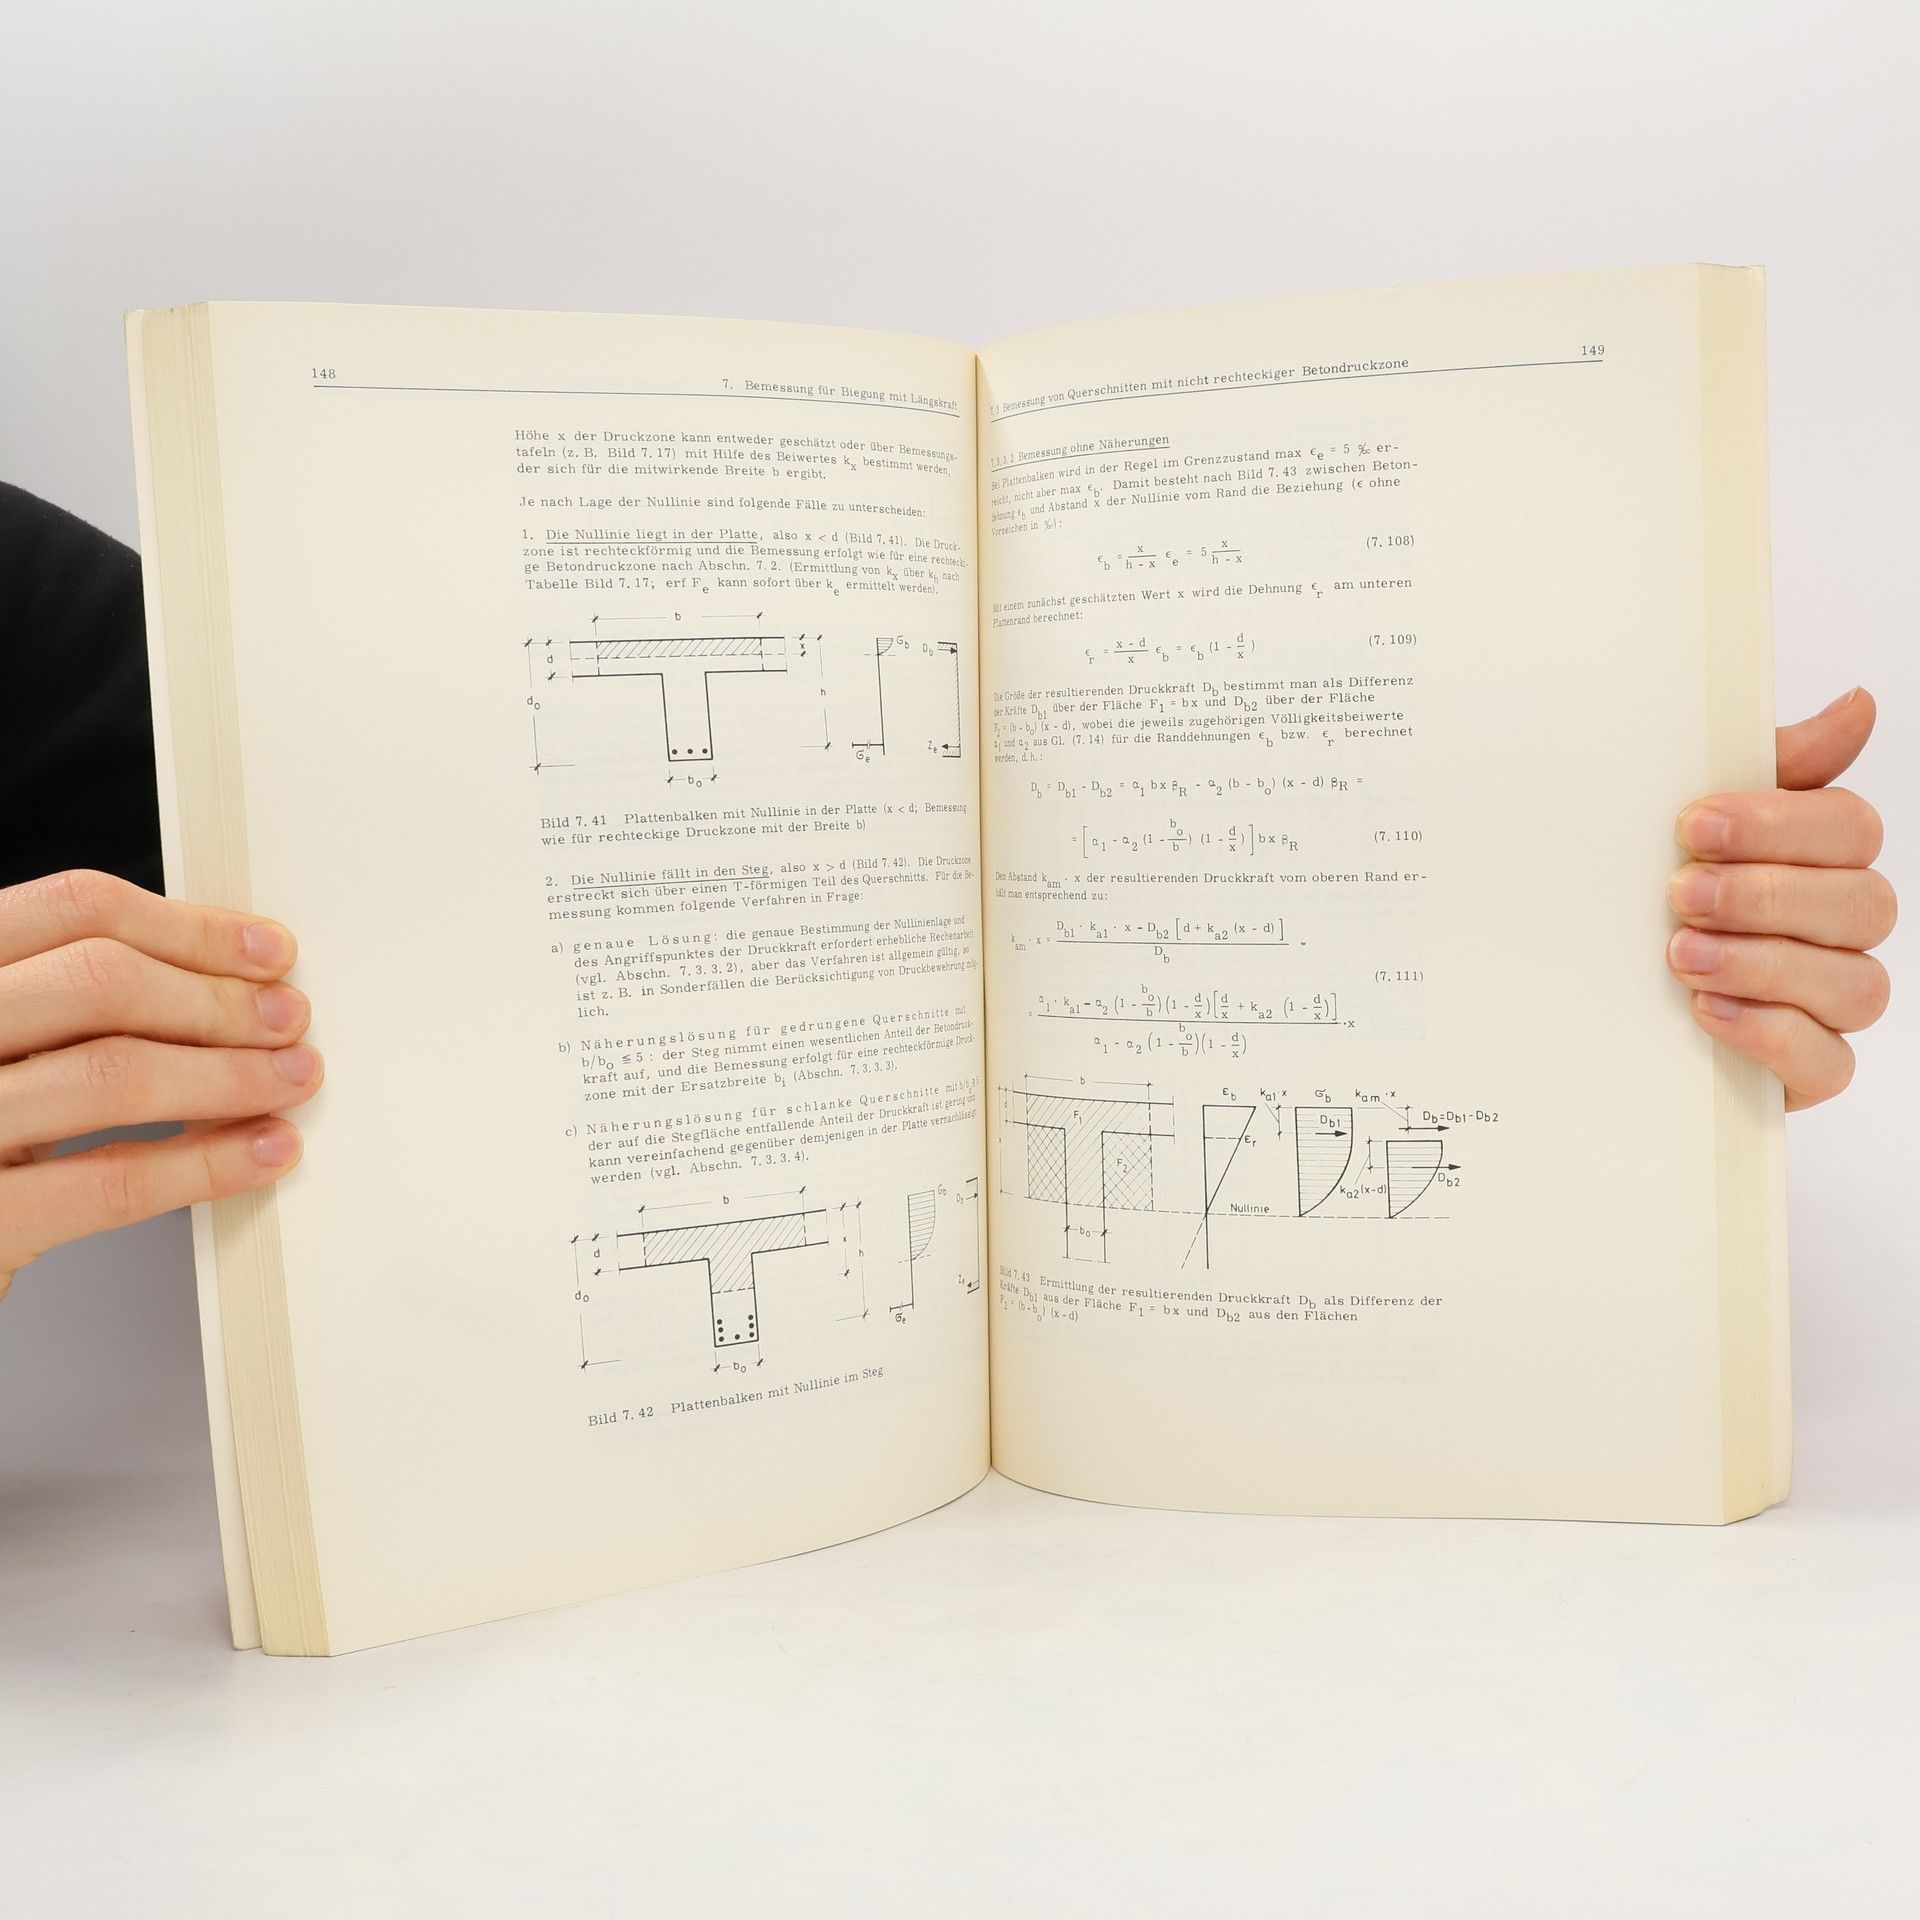 148
7. Bemessung für Biegung mit Längskraft
Höhe x der Druckzone kann entweder geschätzt oder über Bemessungs-
tafeln (z. B. Bild 7. 17) mit Hilfe des Beiwertes kx bestimmt werden,
der sich für die mitwirkende Breite b ergibt.
Je nach Lage der Nullinie sind folgende Fälle zu unterscheiden:
1. Die Nullinie liegt in der Platte, also x < d (Bild 7. 41). Die Druck-
zone ist rechteckförmig und die Bemessung erfolgt wie für eine rechtecki-
ge Betondruckzone nach Abschn. 7. 2. (Ermittlung von kx über kh nach
Tabelle Bild 7. 17; erf Fe kann sofort über ke ermittelt werden).
b
d
x
h
do
σb
Db
σe
Ze
bo
Bild 7. 41 Plattenbalken mit Nullinie in der Platte (x < d; Bemessung
wie für rechteckige Druckzone mit der Breite b)
2. Die Nullinie fällt in den Steg, also x > d (Bild 7. 42). Die Druckzone
erstreckt sich über einen T-förmigen Teil des Querschnitts. Für die Be-
messung kommen folgende Verfahren in Frage:
a) genaue Lösung: die genaue Bestimmung der Nullinienlage und
des Angriffspunktes der Druckkraft erfordert erhebliche Rechenarbeit
(vgl. Abschn. 7. 3. 3. 2), aber das Verfahren ist allgemein gültig, so
ist z. B. in Sonderfällen die Berücksichtigung von Druckbewehrung mög-
lich.
b) Näherungslösung für gedrungene Querschnitte mit
b/bo ≦ 5 : der Steg nimmt einen wesentlichen Anteil der Betondruck-
kraft auf, und die Bemessung erfolgt für eine rechteckförmige Druck-
zone mit der Ersatzbreite bi (Abschn. 7. 3. 3. 3).
c) Näherungslösung für schlanke Querschnitte mit b/bo
der auf die Stegfläche entfallende Anteil der Druckkraft ist gering und
kann vereinfachend gegenüber demjenigen in der Platte vernachlässigt
werden (vgl. Abschn. 7. 3. 3. 4).
b
d
x
h
do
σb
Db
σe
Ze
bo
Bild 7. 42 Plattenbalken mit Nullinie im Steg
149
7.3 Bemessung von Querschnitten mit nicht rechteckiger Betondruckzone
7.3.3.2 Bemessung ohne Näherungen
Bei Plattenbalken wird in der Regel im Grenzzustand max ϵe = 5 ‰ er-
reicht, nicht aber max ϵb. Damit besteht nach Bild 7. 43 zwischen Beton-
dehnung ϵb und Abstand x der Nullinie vom Rand die Beziehung (ϵ ohne
Vorzeichen in ‰) :
ϵb = x / (h - x) ϵe = 5 x / (h - x) (7. 108)
Mit einem zunächst geschätzten Wert x wird die Dehnung ϵr am unteren
Plattenrand berechnet:
ϵr = (x - d) / x ϵb = ϵb (1 - d/x) (7. 109)
Die Größe der resultierenden Druckkraft Db bestimmt man als Differenz
der Kräfte Db1 über der Fläche F1 = bx und Db2 über der Fläche
F2 = (b - bo) (x - d), wobei die jeweils zugehörigen Völligkeitsbeiwerte
α1 und α2 aus Gl. (7. 14) für die Randdehnungen ϵb bzw. ϵr berechnet
werden, d. h. :
Db = Db1 - Db2 = α1 bx βR - α2 (b - bo) (x - d) βR =
= [α1 - α2 (1 - bo/b) (1 - d/x)] bx βR (7. 110)
Den Abstand kam · x der resultierenden Druckkraft vom oberen Rand er-
hält man entsprechend zu:
kam · x = (Db1 · ka1 · x - Db2 [d + ka2 (x - d)]) / Db =
(7. 111)
= (α1 · ka1 - α2 (1 - bo/b)(1 - d/x)[d/x + ka2 (1 - d/x)]) / (α1 - α2 (1 - bo/b)(1 - d/x)) · x
b
d
x
F1
F2
bo
ϵb
ϵr
ka1 · x
σb
Db1
kam · x
Db=Db1-Db2
ka2(x-d)
Db2
Nullinie
Bild 7.43 Ermittlung der resultierenden Druckkraft Db als Differenz der
Kräfte Db1 aus der Fläche F1 = bx und Db2 aus den Flächen
F2 = (b - bo) (x - d)